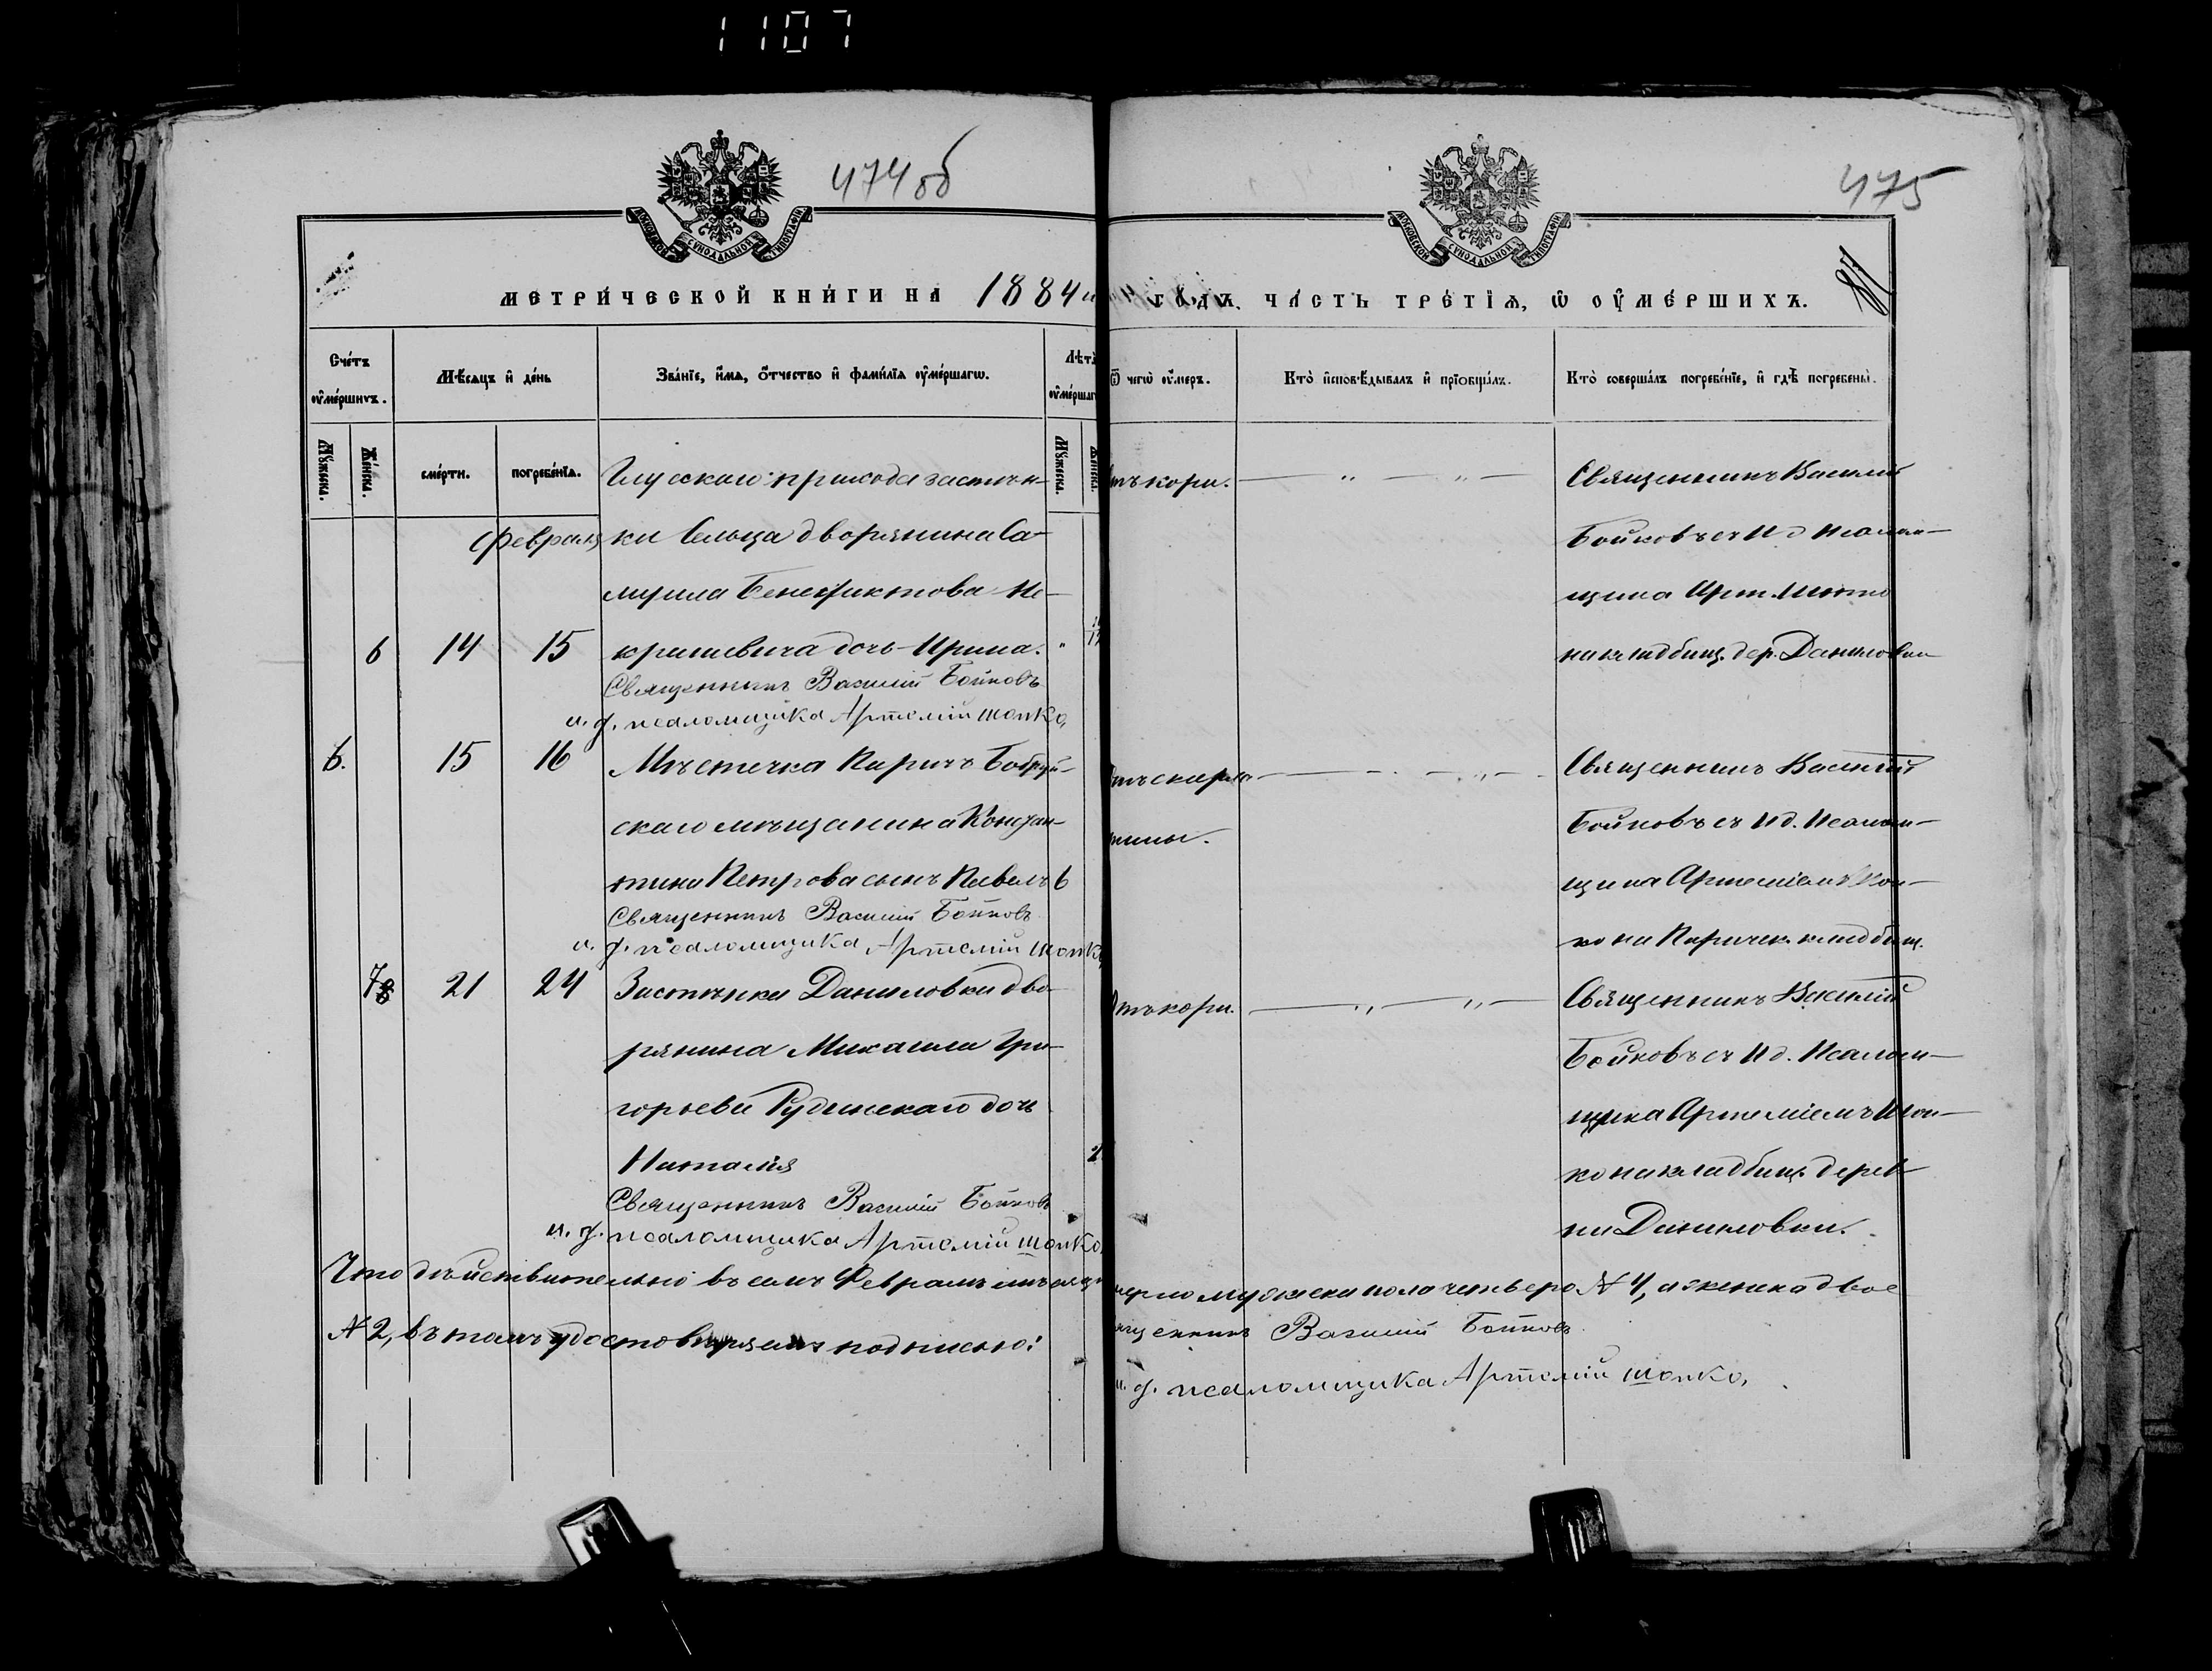 1107
474 об
475
МОСКОВСКОЙ СѴНОДАЛЬНОЙ ТИПОГРАФІИ
МОСКОВСКОЙ СѴНОДАЛЬНОЙ ТИПОГРАФІИ
МЕТРИ́ЧЕСКОЙ КНИ́ГИ НА 1884 й
ГО́ДЪ, ЧА́СТЬ ТРЕ́ТІѦ, Ѡ ОУМЕ́РШИХЪ.
Сче́тъ оуме́ршихъ.
Мѣ́сяцъ и де́нь
Зва́ніе, и́мѧ, о́тчество и фами́лія оуме́ршагѡ.
Лѣта̀ оуме́ршаг
Ѿ чегѡ̀ оу́меръ.
Кто̀ исповѣ́дывалъ и пріобща́лъ.
Кто̀ соверша́лъ погребе́ніе, и гдѣ̀ погребены̀.
Му́жеска.
Же́нска.
сме́рти.
погребе́нія.
Му́жеска.
Же́нска.
Февраля
Глусскаго прихода застѣн-
ки Сельца дворянина Са-
муила Бенефиктова Не-
6 14 15 дочь Ирина. "
Священникъ Василій Бойковъ
и. д. псаломщика Артемій Шопко,
ъ кори. — " — " —
Священникъ Василій
Бойковъ съ И д Псалом-
щика Арт. Шопко
на кладбищ. дер. Даниловки
6. 15 16 Мѣстечка Паричъ Бобруй-
скаго мѣщанина Констан-
тина Петрова сынъ Павелъ 6
Священникъ Василій Бойковъ
и. д. псаломщика Артемій Шопко,
тъ скарла-
тины.
Священникъ Василій
Бойковъ съ И д. Псалом-
щика Артеміемъ Шоп-
ко на Паричск. кладбищ.
7 21 24 Застѣнка Даниловки дво-
рянина Михаила Гри-
горьева Рудинскаго дочь
Наталія 2
Священникъ Василій Бойковъ
и. д. псаломщика Артемій Шопко,
тъ кори. — " — " —
Священникъ Василій
Бойковъ съ И д. Псалом-
щика Артеміемъ Шоп-
ко на кладбищ. дерев-
ни Даниловки.
Что дѣйствительно въ семъ Февралѣ мѣсяцѣ
мерло мужеска пола четверо № 4, а женска двое
№ 2, въ томъ удостовѣряемъ подписью:
щенникъ Василій Бойковъ
и. д. псаломщика Артемій Шопко,